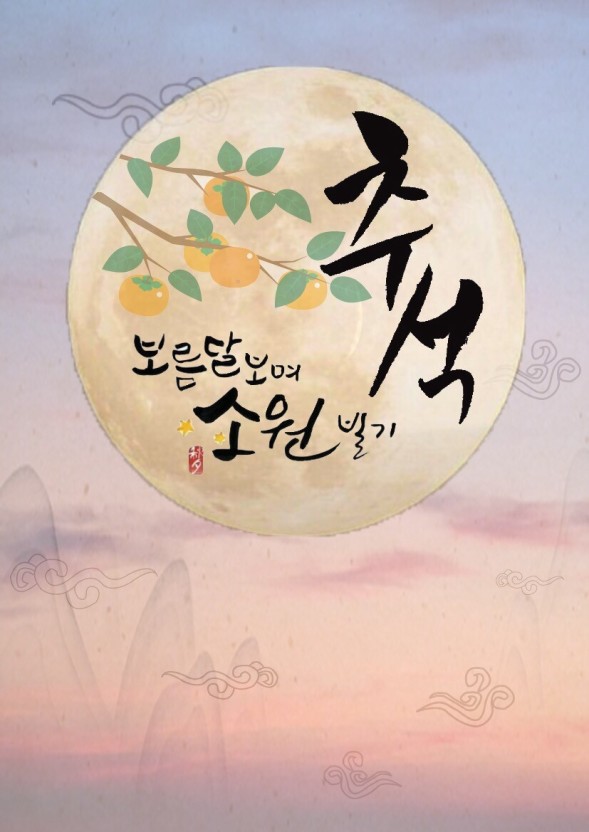 추석
보름달 보며
소원 빌기